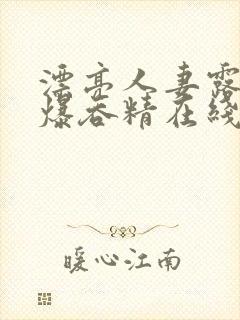 漂亮人妻露
爆吞精在线
暖心江南